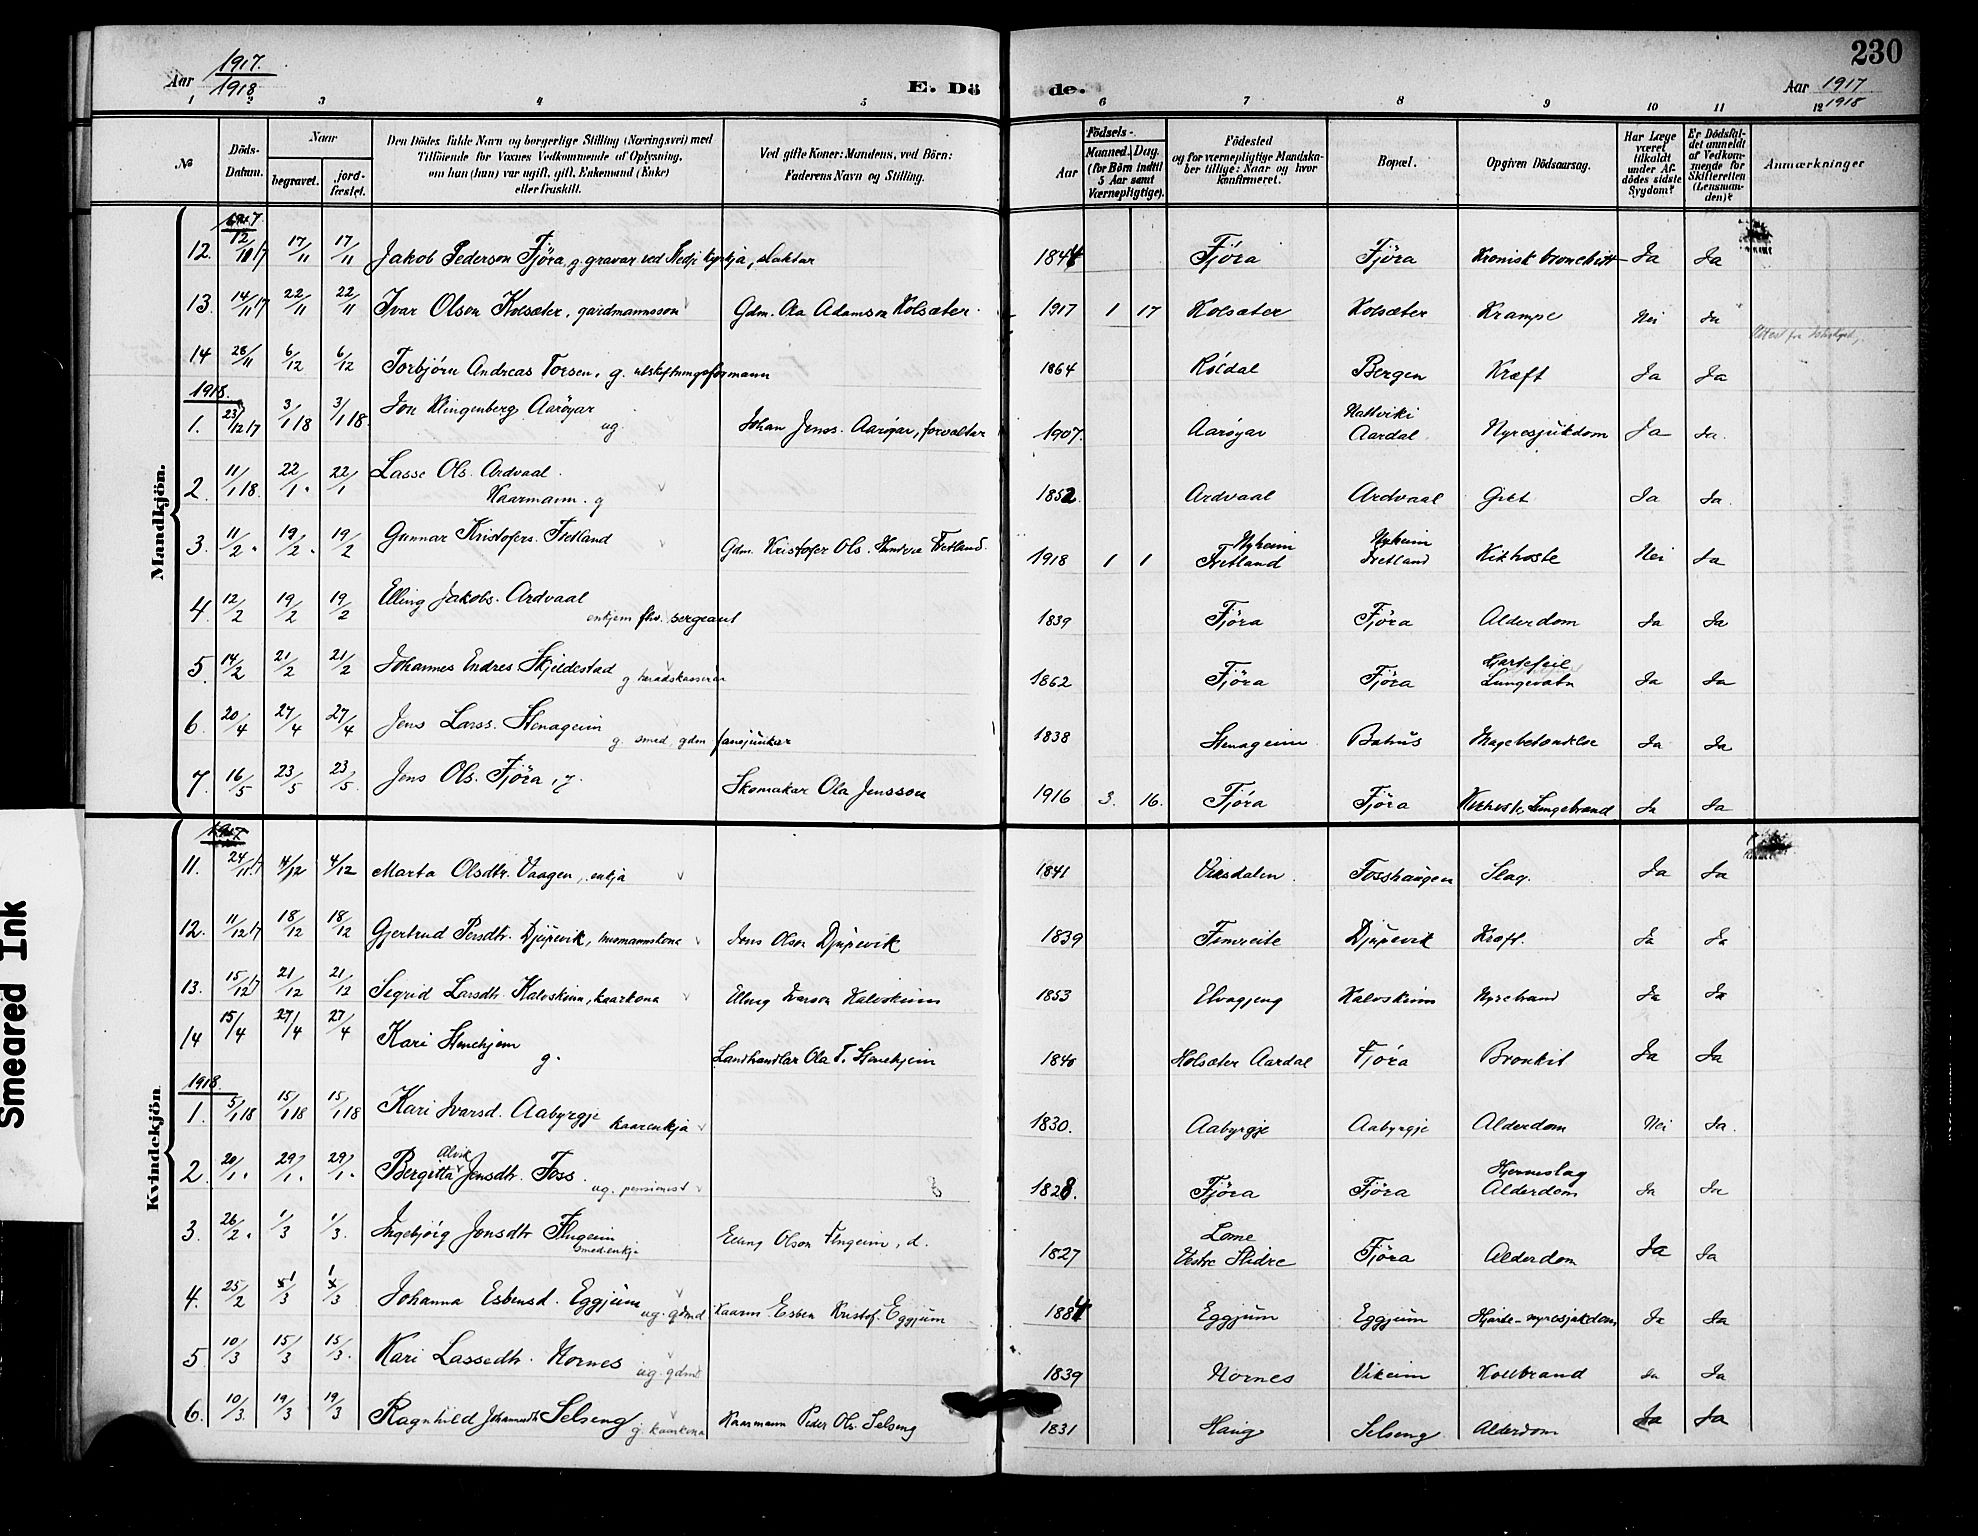 230
Aar 1917. 1918
E. Döde.
Aar 1917 1918
1 2 3 4 5 6 7 8 9 10 11 12
No
Döds-Datum.
Naar begravet. jord-fæstet.
Den Dödes fulde Navn og borgerlige Stilling (Næringsvei) med Tilföiende for Voxnes Vedkommende af Oplysning, om han (hun) var ugift, gift, Enkemand (Enke) eller fraskilt.
Ved gifte Koner: Mandens, ved Börn: Faderens Navn og Stilling.
Födsels-
Aar
Maaned. Dag. (for Börn indtil 5 Aar samt Værnepligtige).
Födested og for værnepligtige Mandskaber tillige: Naar og hvor konfirmeret.
Bopæl.
Opgiven Dödsaarsag.
Har Læge været tilkaldt under Afdödes sidste Sygdom?
Er Dödsfaldet anmeldt af Vedkommende for Skifteretten (Lensmanden)?
Anmærkninger
Mandkjön.
1917.
12. 12/10 17 17/11 17/11 Jakob Pederson Fjöra, g. gravar ved Stedje kyrkja, slaktar 1844 Fjöra Fjöra Kronisk bronchitt Ja Ja
13. 14/11 17 22/11 22/11 Ivar Olson Kolsæter, gardmannsson Gdm. Ola Adamson Kolsæter. 1917 1 17 Kolsæter Kolsæter Krampe Nei Ja
14 28/11 6/12 6/12 Torbjörn Andreas Torsen, g. utskiftningsformann 1864 Röldal Bergen Kræft Ja Ja
1918.
1. 23/12 17 3/1 18 3/1 18. Jon Klingenberg Aaröyar ug. Johan Jenss. Aaröyar, forvaltar 1907. Aaröyar Nattviki Aardal Nyresjukdom Ja Ja.
2. 11/1 18. 22/1. 22/1 Lasse Ols. Ardvaal. Kaarmann. g 1852. Ardvaal Ardvaal Gikt Ja Ja.
3. 11/2. 19/2. 19/2 Gunnar Kristofers. Fretland Gdm. Kristofer Ols. Fretland. 1918 1 1 Nyheim Fretland Nyheim Fretland Kikhoste Nei Ja
4 12/2 19/2 19/2 Elling Jakobs. Ardvaal enkjem fhv. sergeant 1839 Fjöra Fjöra Alderdom Ja Ja
5. 14/2 21/2 21/2 Johannes Endres Skjeldestad g heradskasserar 1862 Fjöra Fjöra Hjartefeil Lungevatn Ja Ja
6. 20/4 27/4 27/4 Jens Larss. Stenageim g. smed, gdm fanejunkar 1838 Stenageim Bahus Magebetendelse Ja Ja
7. 16/5 23/5 23/5. Jens Ols. Fjöra, Skomakar Ola Jensson 1916 3. 16. Fjöra Fjöra Kikhoste Lungebrand Ja Ja
Kvindekjön
1917
11. 24/11.17 4/12 4/12 Marta Olsdtr. Vaagen, enkja 1841 Viksdalen. Fosshaugen Slag. Ja Ja
12. 11/12 17 18/12 18/12 Gjertrud Persdtr. Djupevik, husmannskone Jens Olson Djupevik 1839 Fimreite Djupevik Kræft. Ja Ja
13. 15/12 17 21/12 21/12 Sigrid Larsdtr. Kalvskinn, kaarkona Elling Ivarson Kalvskinn 1853 Elvagjeng Kalvskinn Nyrebrand Ja Ja
14 15/4 27/4 27/4 Kari Stenehjem g. Landhandlar Ola T. Stenehjem 1840 Holsæter Aardal Fjöra Bronkit Ja Ja
1918.
1. 5/1 18 15/1 18 15/1 18 Kari Ivarsd. Aabyrgje kaarenkja 1830. Aabyrgje Aabyrgje Alderdom Nei Ja.
2. 20/1. 29/1. 29/1. Bergitta Alvik Jensdtr. Foss. ug. pensionist 1828. Fjöra Fjöra Hjerneslag Alderdom Ja Ja
3. 26/2. 1/3 1/3. Ingebjörg Jonsdtr Flugeim smedenkje Elling Olson Flugeim, d. 1827 Lome Vestre Slidre Fjöra Alderdom Ja Ja
4. 25/2 1/3 1/3 Johanna Esbensd. Eggjum ug. gdmd Kaarm Esben Kristof. Eggjum 1884 Eggjum Eggjum Hjarte-nyresjukdom Ja Ja
5. 10/3 15/3 15/3. Kari Lassedtr. Nornes ug. gdmd 1839 Nornes Vikeim Koldbrand Ja Ja
6. 10/3. 19/3 19/3 Ragnhild Johannsdtr Selseng g. kaarkona Kaarmann Peder Ols. Selseng 1831 Haug Selseng Alderdom Ja Ja
Smeared Ink